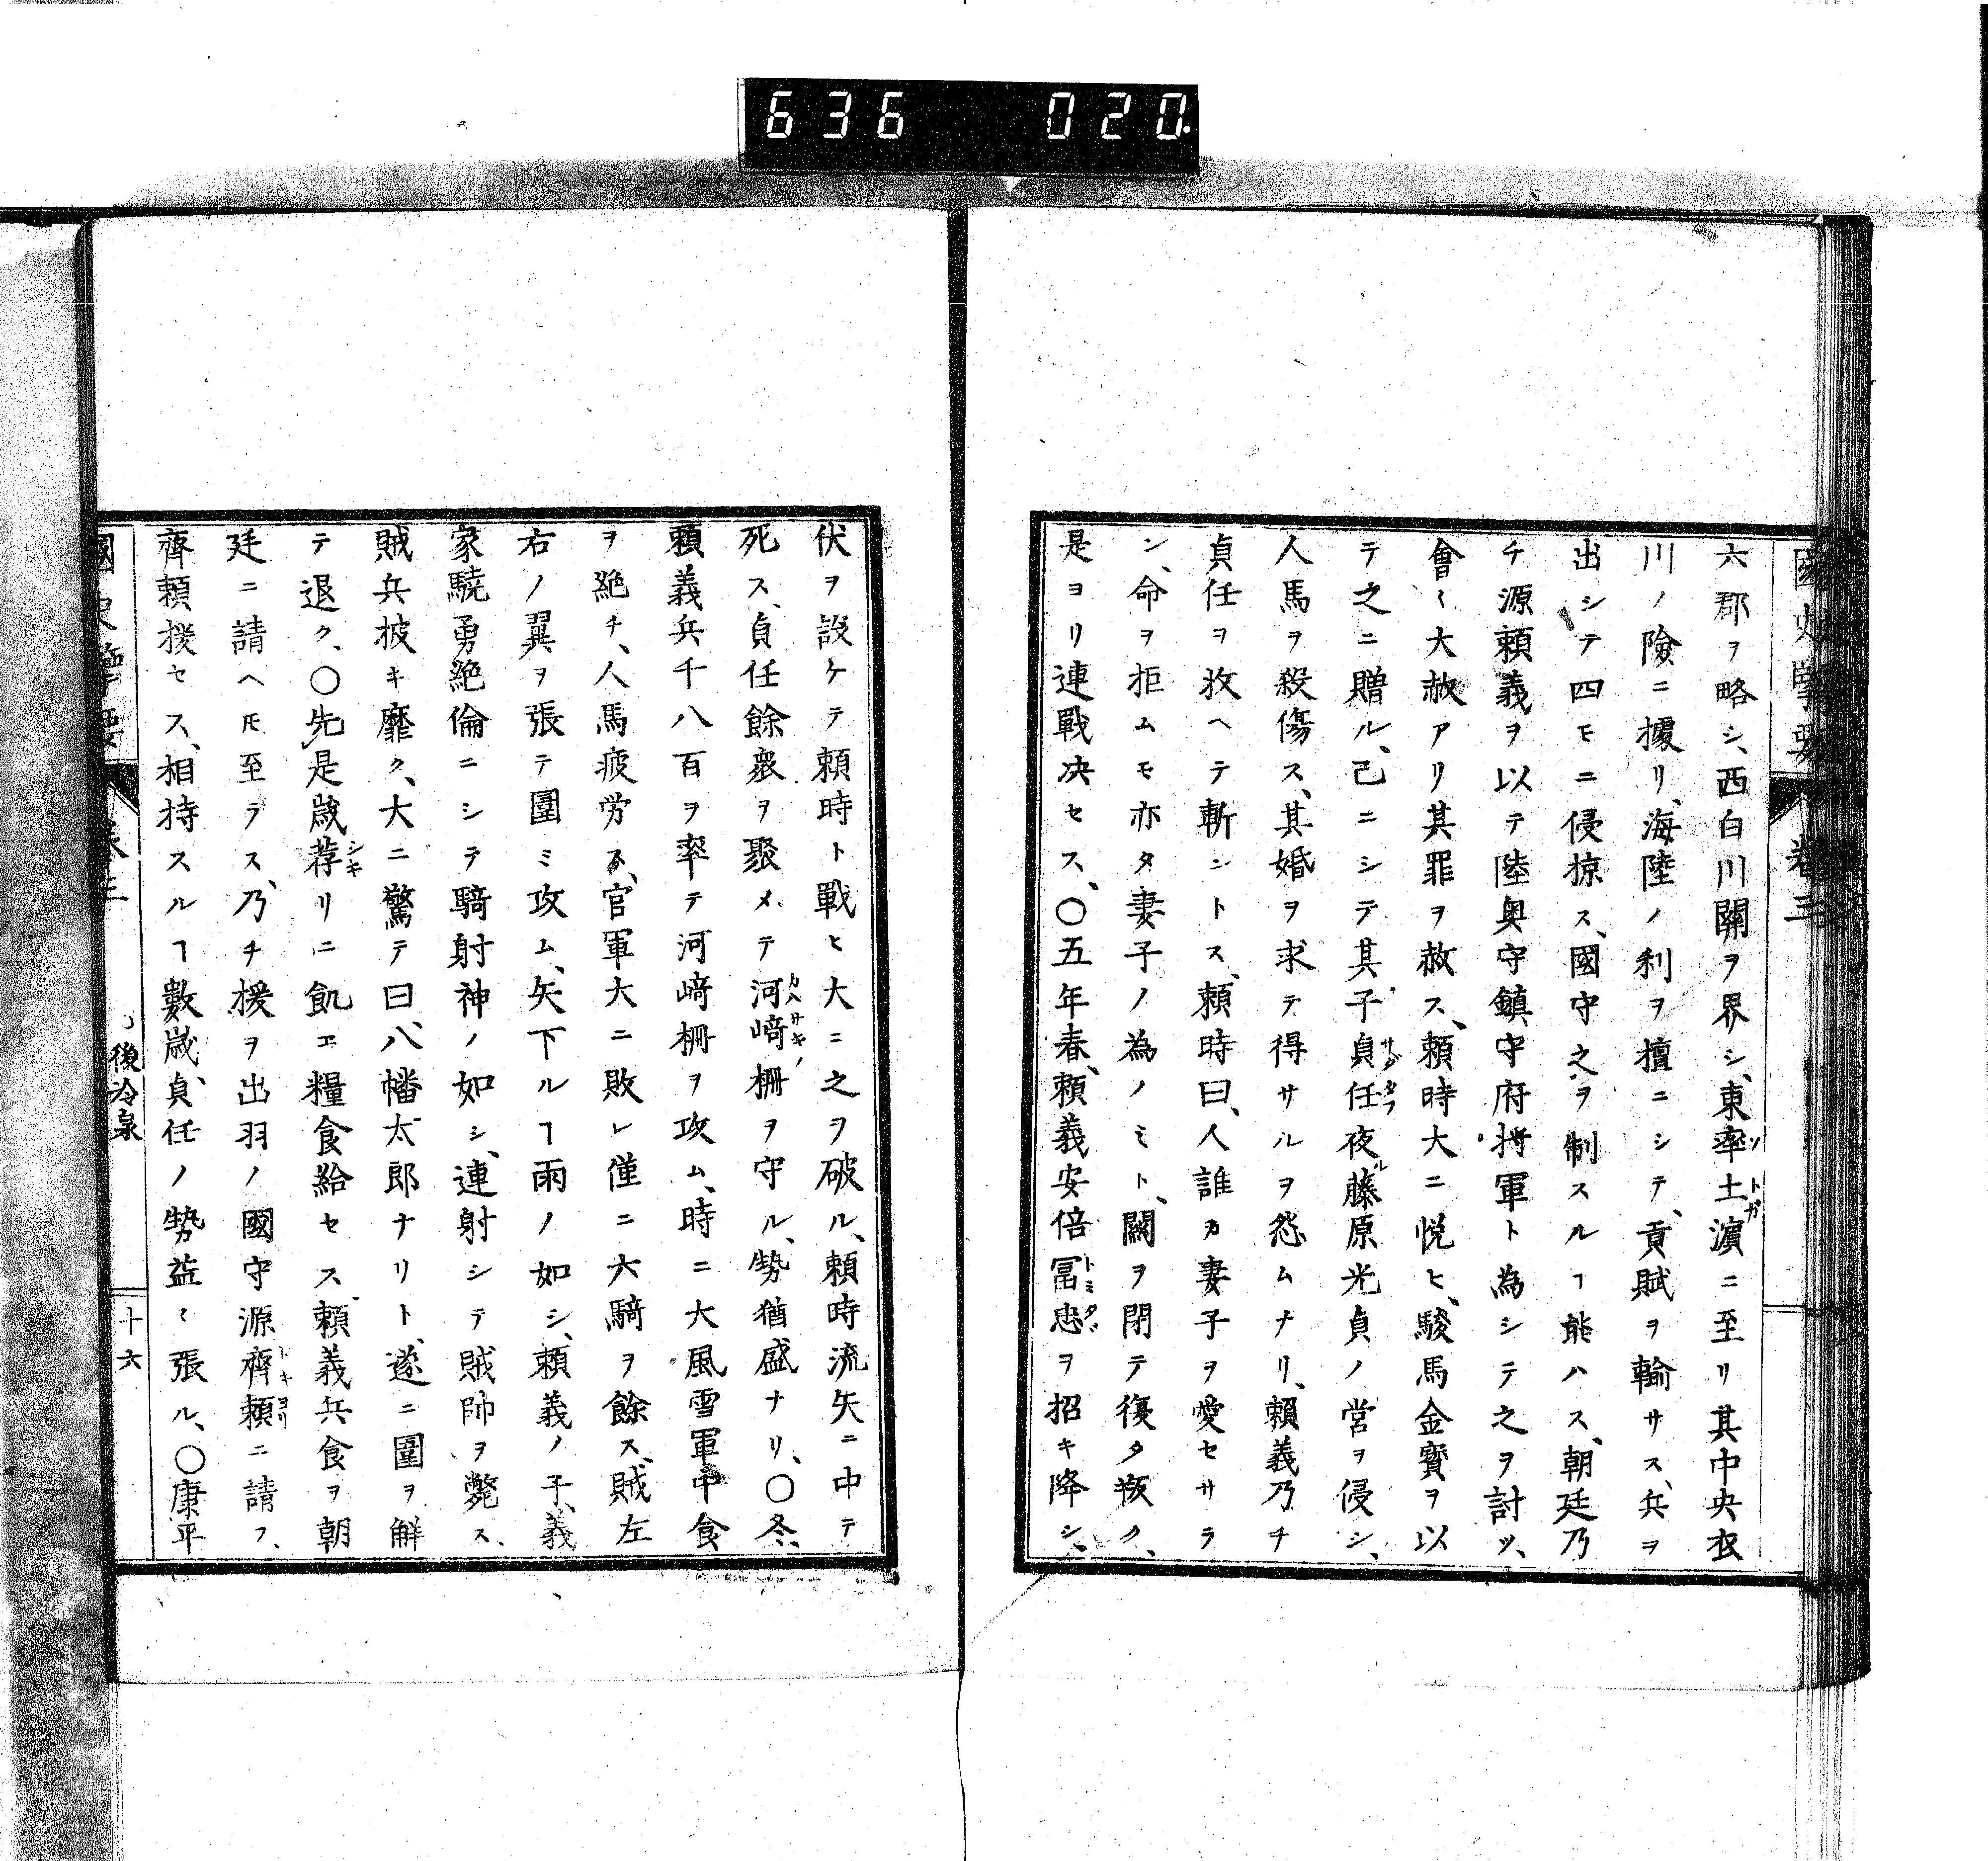 636 020
國史擥要 卷三
六郡ヲ略シ、西白川關ヲ界シ、東率土濵ニ至リ其中央衣
川ノ險ニ據リ、海陸ノ利ヲ擅ニシテ、貢賦ヲ輸サス、兵ヲ
出シテ四モニ侵掠ス、國守之ヲ制スルヿ能ハス、朝廷乃
チ源頼義ヲ以テ陸奥守鎮守府将軍ト為シテ之ヲ討ツ、
會〻大赦アリ其罪ヲ赦ス、頼時大ニ悦ヒ、駿馬金寳ヲ以
テ之ニ贈ル、己ニシテ其子貞任夜藤原光貞ノ営ヲ侵シ、
人馬ヲ殺傷ス、其婚ヲ求テ得サルヲ怨ムナリ、頼義乃チ
貞任ヲ攷ヘテ斬ントス、頼時曰、人誰カ妻子ヲ愛セサラ
ン、命ヲ拒ムモ亦タ妻子ノ為ノミト、關ヲ閉テ復タ叛ク、
是ヨリ連戰决セス、〇五年春、頼義安倍冨忠ヲ招キ降シ、
伏ヲ設ケテ頼時ト戰ヒ大ニ之ヲ破ル、頼時流矢ニ中テ
死ス、貞任餘衆ヲ聚メテ河﨑柵ヲ守ル、勢猶盛ナリ、〇冬、
頼義兵千八百ヲ率テ河﨑柵ヲ攻ム、時ニ大風雪軍中食
ヲ絶チ、人馬疲労ス、官軍大ニ敗レ僅ニ六騎ヲ餘ス、賊左
右ノ翼ヲ張テ圍ミ攻ム、矢下ルヿ雨ノ如シ、頼義ノ子、義
家驍勇絶倫ニシテ騎射神ノ如シ、連射シテ賊帥ヲ斃ス、
賊兵披キ靡ク、大ニ驚テ曰、八幡太郎ナリト、遂ニ圍ヲ解
テ退ク、〇先是歳荐リニ飢エ糧食給セス、頼義兵食ヲ朝
廷ニ請ヘ𪜈至ラス、乃チ援ヲ出羽ノ國守源齊頼ニ請フ、
齊頼援セス、相持スルヿ數歳、貞任ノ勢益〻張ル、〇康平
國史擥要 卷三 後冷泉 十六